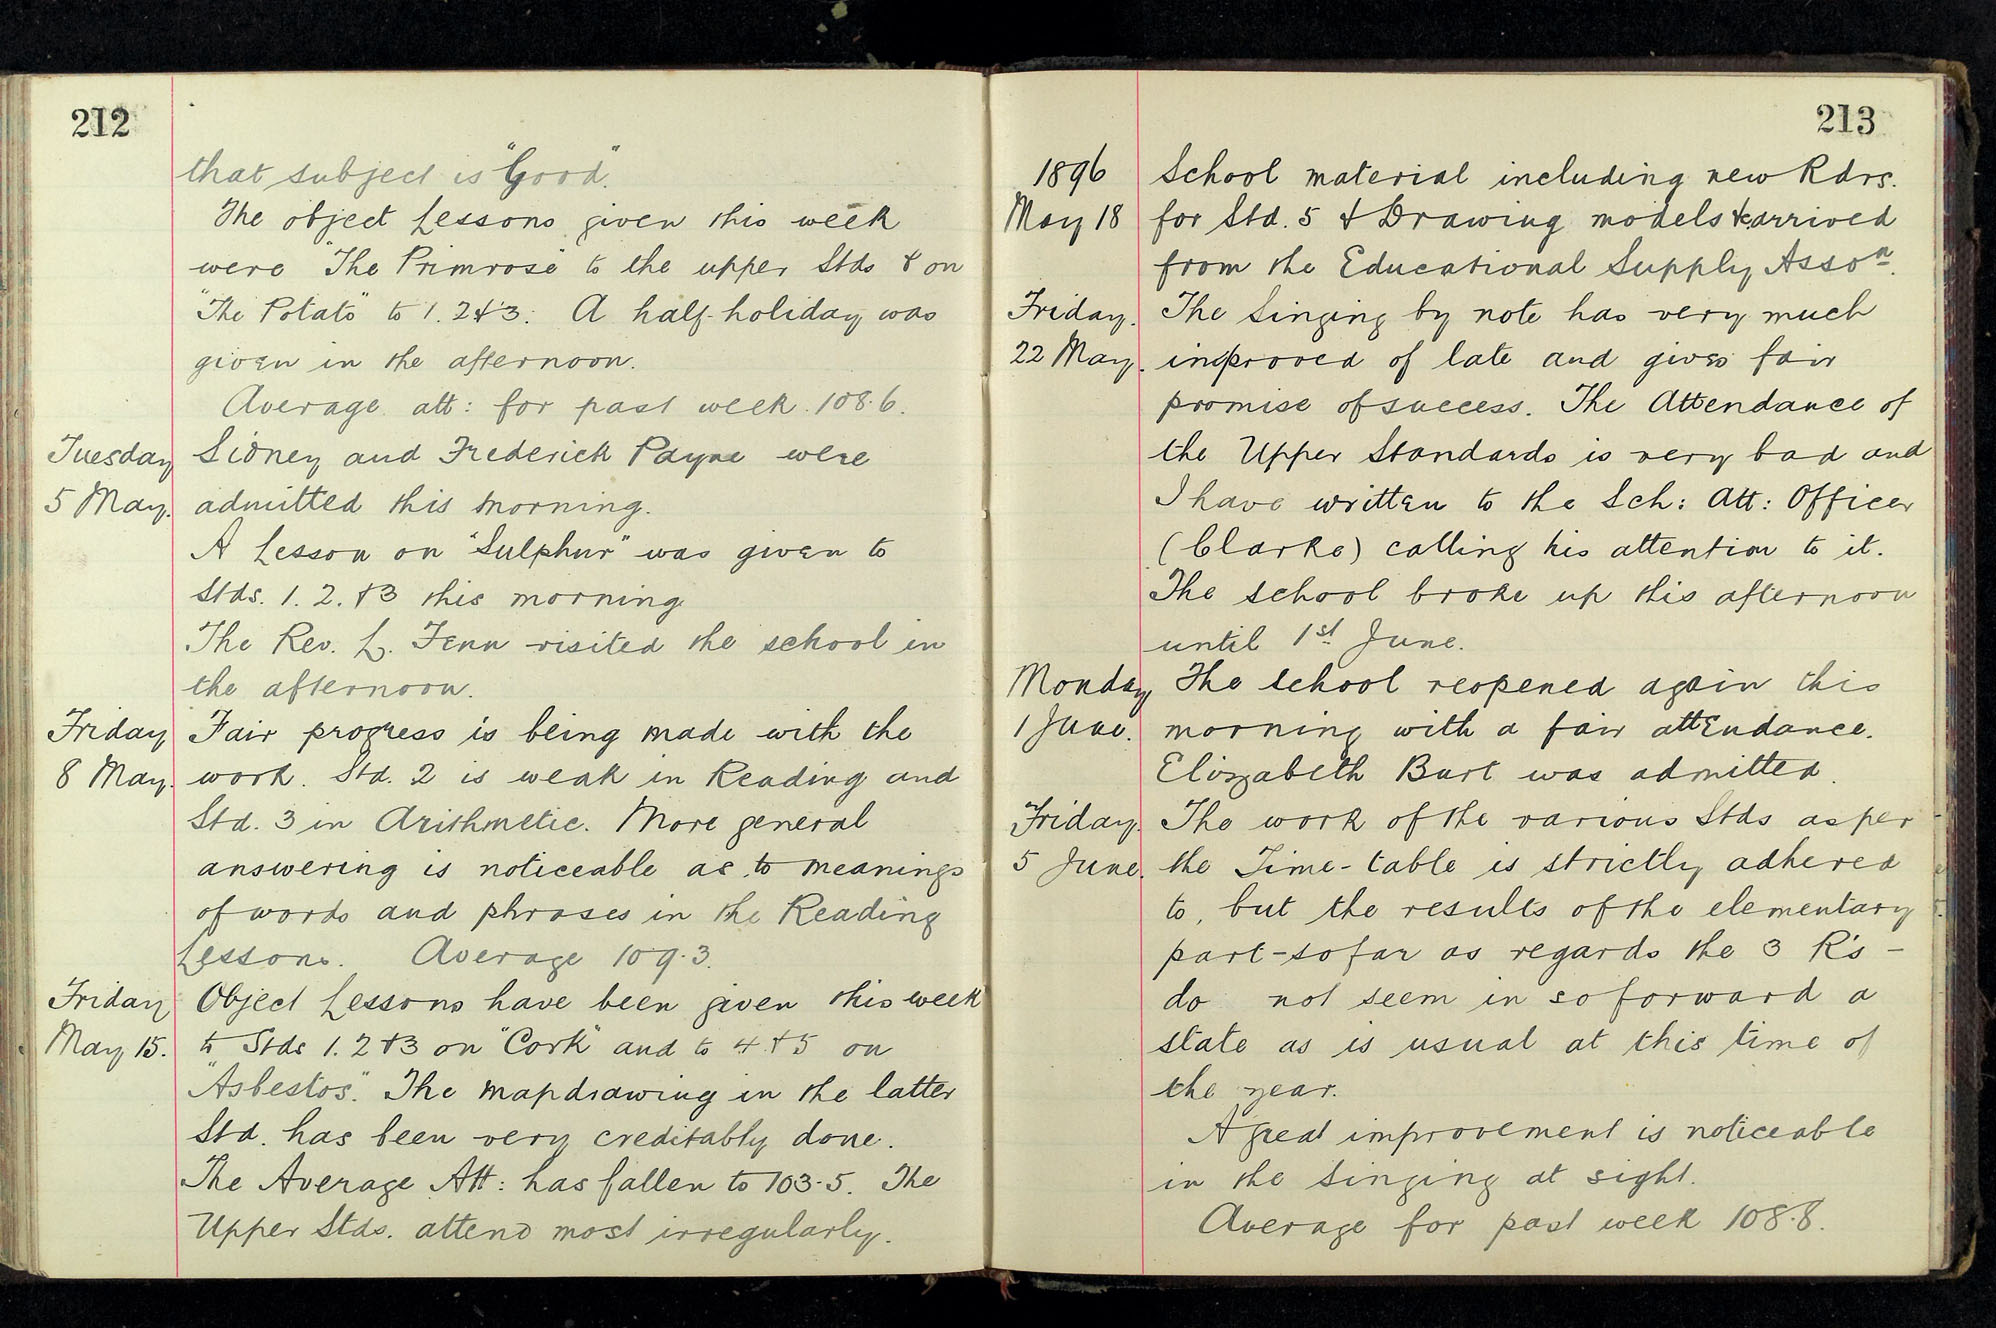 212
that subject is "Good".
The object Lessons given this week
were "The Primrose" to the upper Stds & on
"The Potato" to 1. 2 & 3. A half-holiday was
given in the afternoon.
Average att: for past week. 108.6.
Tuesday Sidney and Frederick Payne were
5 May. admitted this morning.
A Lesson on "Sulphur" was given to
Stds. 1. 2. & 3 this morning
The Rev. L. Fenn visited the school in
the afternoon.
Friday Fair progress is being made with the
8 May. work. Std. 2 is weak in Reading and
Std. 3 in Arithmetic. More general
answering is noticeable as to meanings
of words and phrases in the Reading
Lessons. Average 109.3.
Friday Object Lessons have been given this week
May 15. to Stds 1. 2 & 3 on "Cork" and to 4 & 5 on
"Asbestos". The mapdrawing in the latter
Std. has been very creditably done.
The Average Att: has fallen to 103.5. The
Upper Stds. attend most irregularly.
213
1896 School material including new Rdrs.
May 18 for Std. 5 & Drawing models &c arrived
from the Educational Supply Asson.
Friday. The Singing by note has very much
22 May. improved of late and gives fair
promise of success. The Attendance of
the Upper Standards is very bad and
I have written to the Sch: Att: Officer
(Clarke) calling his attention to it.
The school broke up this afternoon
until 1st June.
Monday The school reopened again this
1 June. morning with a fair attendance.
Elizabeth Burt was admitted.
Friday. The work of the various Stds as per
5 June. the Time-table is strictly adhered
to, but the results of the elementary
part - so far as regards the 3 R's -
do not seem in so forward a
state as is usual at this time of
the year.
A great improvement is noticeable
in the singing at sight.
Average for past week 108.8.